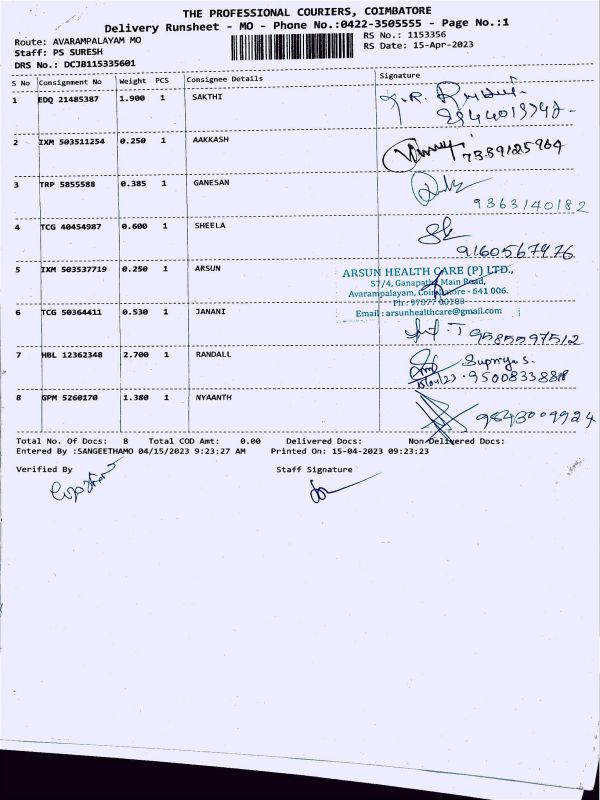 THE PROFESSIONAL COURIERS, COIMBATORE
Delivery Runsheet - MO - Phone No.:0422-3505555 - Page No.:1
Route: AVARAMPALAYAM MO
RS No.: 1153356
Staff: PS SURESH
RS Date: 15-Apr-2023
DRS No.: DCJB115335601
S No Consignment No Weight PCS Consignee Details Signature
1 EDQ 21485387 1.900 1 SAKTHI
2 IXM 503511254 0.250 1 AAKKASH
7339125964
3 TRP 5855588 0.385 1 GANESAN
9363140182
4 TCG 40454987 0.600 1 SHEELA
9160567476
5 IXM 503537719 0.250 1 ARSUN
ARSUN HEALTH CARE (P) LTD.,
57/4, Ganapathy Main Road,
Avarampalayam, Coimbatore - 641 006.
Ph: 97877 00188
Email: arsunhealthcare@gmail.com
6 TCG 50364411 0.530 1 JANANI
9585597512
7 HBL 12362348 2.700 1 RANDALL
Supriya S.
15/04/23
8 GPM 5260170 1.380 1 NYAANTH
9843009924
Total No. Of Docs: 8 Total COD Amt: 0.00 Delivered Docs: Non-Delivered Docs:
Entered By :SANGEETHAMO 04/15/2023 9:23:27 AM Printed On: 15-04-2023 09:23:23
Verified By Staff Signature